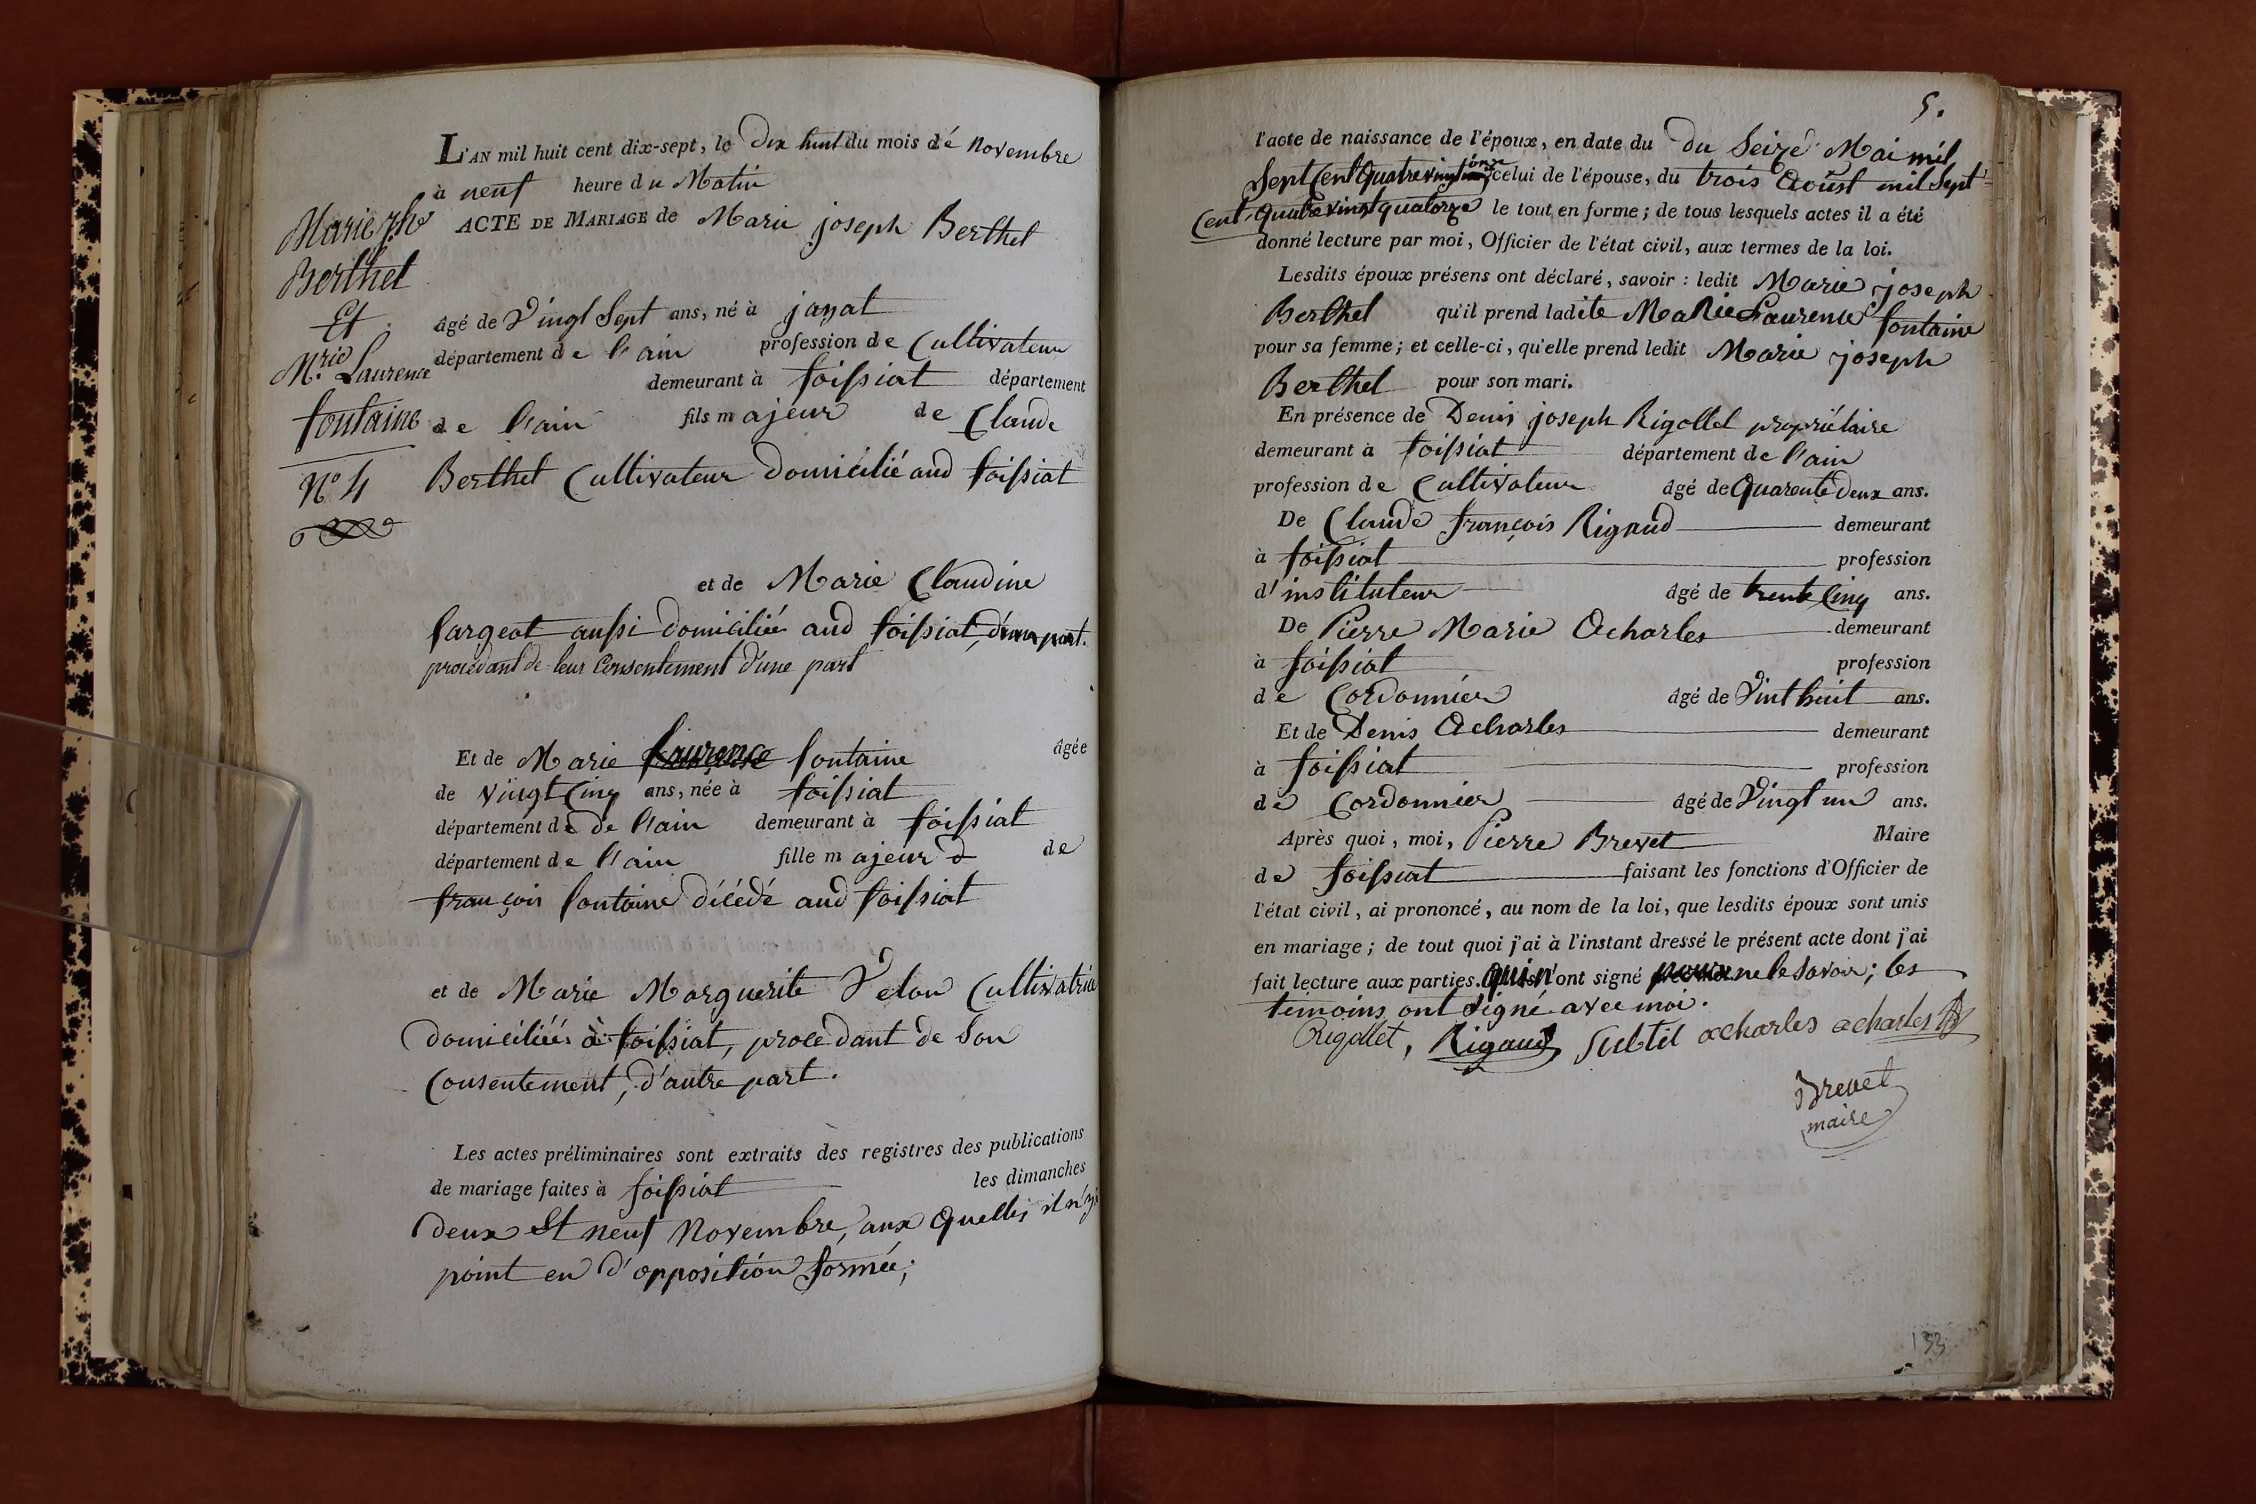 L'AN mil huit cent dix-sept, le dix huit du mois dé Novembre
à neuf heure du Matin
ACTE DE MARIAGE de Marie joseph Berthet
Marie jh
Berthet
Et
M.rie Laurence
fontaine
N° 4
âgé de Vingt Sept ans, né à jayat
département de l'ain profession de Cultivateur
demeurant à foissiat département
de l'ain fils majeur de Claude
Berthet Cultivateur domicilié aud foissiat
et de Marie Claudine
fargeot aussi domiciliée aud foissiat, d'une part.
procédant de leur Consentement d'une part
Et de Marie Laurence fontaine âgée
de vingt Cinq ans, née à foissiat
département de de l'ain demeurant à foissiat
département de l'ain fille majeur d de
françois fontaine décédé aud foissiat
et de Marie Marguerite Velon Cultivatrice
domiciliée à foissiat, procedant de Son
Consentement, d'autre part.
Les actes préliminaires sont extraits des registres des publications
de mariage faites à foissiat les dimanches
deux Et neuf Novembre, aux quelles il n'y a
point eu d'opposition formée;
5.
l'acte de naissance de l'époux, en date du du Seize Mai mil
Sept Cent Quatre vingt onze celui de l'épouse, du trois Août mil Sept
Cent quatre vingt quatorze le tout en forme; de tous lesquels actes il a été
donné lecture par moi, Officier de l'état civil, aux termes de la loi.
Lesdits époux présens ont déclaré, savoir : ledit Marie joseph
Berthet qu'il prend ladite Marie Laurence fontaine
pour sa femme; et celle-ci, qu'elle prend ledit Marie joseph
Berthet pour son mari.
En présence de Denis joseph Rigollet propriétaire
demeurant à foissiat département de l'ain
profession de Cultivateur âgé de Quarente deux ans.
De Claude françois Rigaud demeurant
à foissiat profession
d'instituteur âgé de trente Cinq ans.
De Pierre Marie Acharles demeurant
à foissiat profession
de Cordonnier âgé de Vint huit ans.
Et de Denis Acharles demeurant
à foissiat profession
de Cordonnier âgé de Vingt un ans.
Après quoi, moi, Pierre Brevet Maire
de foissiat faisant les fonctions d'Officier de
l'état civil, ai prononcé, au nom de la loi, que lesdits époux sont unis
en mariage; de tout quoi j'ai à l'instant dressé le présent acte dont j'ai
fait lecture aux parties. qui n'ont signé pour ne le savoir; les
témoins ont signé avec moi.
Rigollet, Rigaud Subtil acharles acharles
Brevet
maire
133